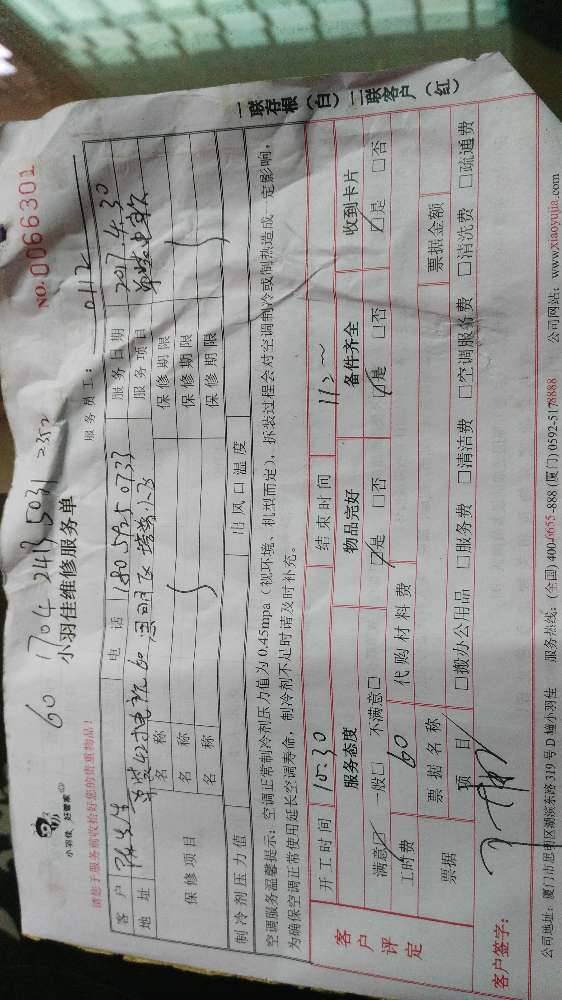 NO.0066301
60 1704 2413 5031 2352
小羽佳 好管家
小羽佳维修服务单
请您于服务前收拾好您的贵重物品!
服务员工: 0112
客户 陈先生 电话 180 5925 0733 服务日期 2017.4.30
地址 服务项目
保修项目 名称 保修期限
名称 保修期限
名称 保修期限
制冷剂压力值 出风口温度
空调服务温馨提示:空调正常制冷剂压力值为0.45mpa(视环境、机型而定),拆装过程会对空调制冷或制热造成一定影响,
为确保空调正常使用延长空调寿命,制冷剂不足时请及时补充。
一联存根(白)二联客户(红)
客户评定
开工时间 10:30 结束时间
服务态度 物品完好 备件齐全 收到卡片
满意☑ 一般□ 不满意□ ☑是 □否 ☑是 □否 ☑是 □否
工时费 60 代购材料费
票据 票据名称 票据金额
项目 □搬办公用品 □服务费 □清洁费 □空调服务费 □清洗费 □疏通费
客户签字:
公司地址:厦门市思明区湖滨东路319号D幢小羽佳 服务热线:(全国)4006655-888(厦门)0592-5178888 公司网站:www.xiaoyujia.com